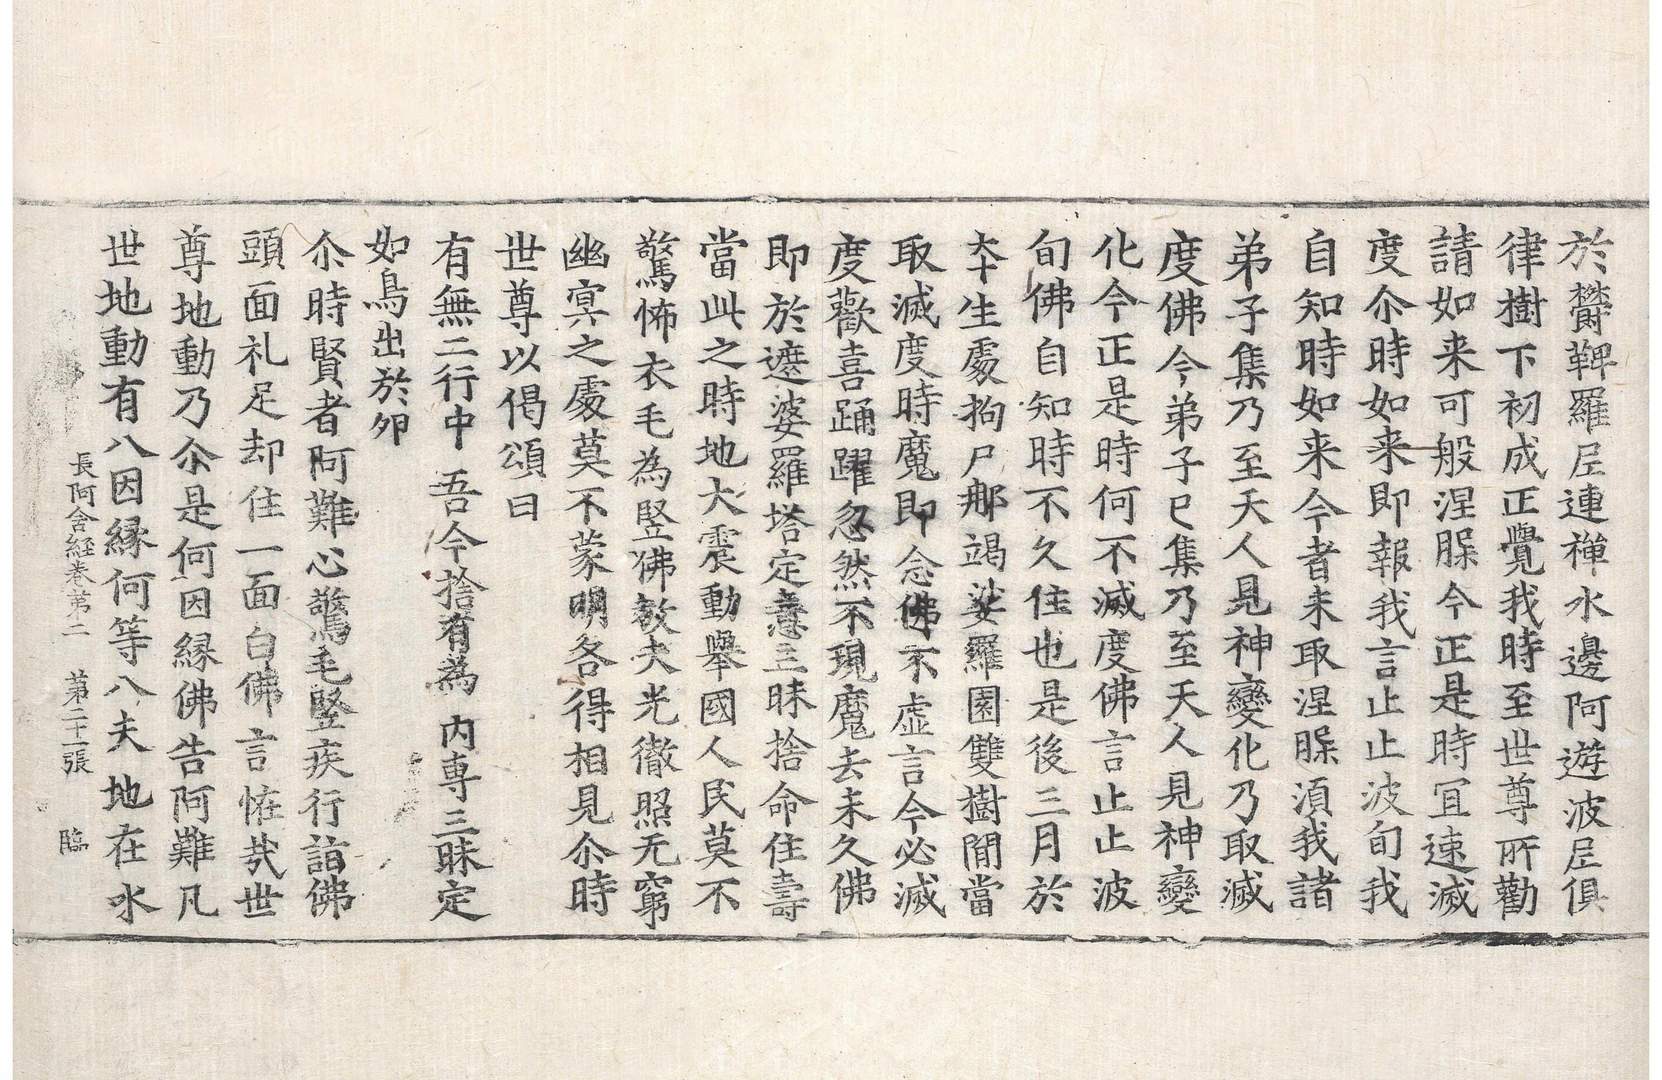 於欝鞞羅尼連禅水邊阿遊波尼俱
律樹下初成正覺我時至世尊所勸
請如来可般涅脲今正是時冝速滅
度尒時如来即報我言止止波旬我
自知時如来今者未取涅脲湏我諸
弟子集乃至天人見神變化乃取滅
度佛今弟子已集乃至天人見神變
化今正是時何不滅度佛言止止波
旬佛自知時不久住也是後三月於
本生處拘尸那竭娑羅園雙樹間當
取滅度時魔即念佛不虛言今必滅
度歡喜踊躍忽然不現魔去未久佛
即於遮婆羅塔定意三昧捨命住壽
當此之時地大震動舉國人民莫不
驚怖衣毛為竪佛放大光徹照无窮
幽冥之處莫不蒙明各得相見尒時
世尊以偈頌曰
有無二行中 吾今捨有為 内専三昧定
如鳥出於卵
尒時賢者阿難心驚毛竪疾行詣佛
頭面礼足却住一面白佛言恠㦲世
尊地動乃尒是何因縁佛告阿難凡
世地動有八因縁何等八夫地在水
長阿含経巻第二 第二十一張 臨